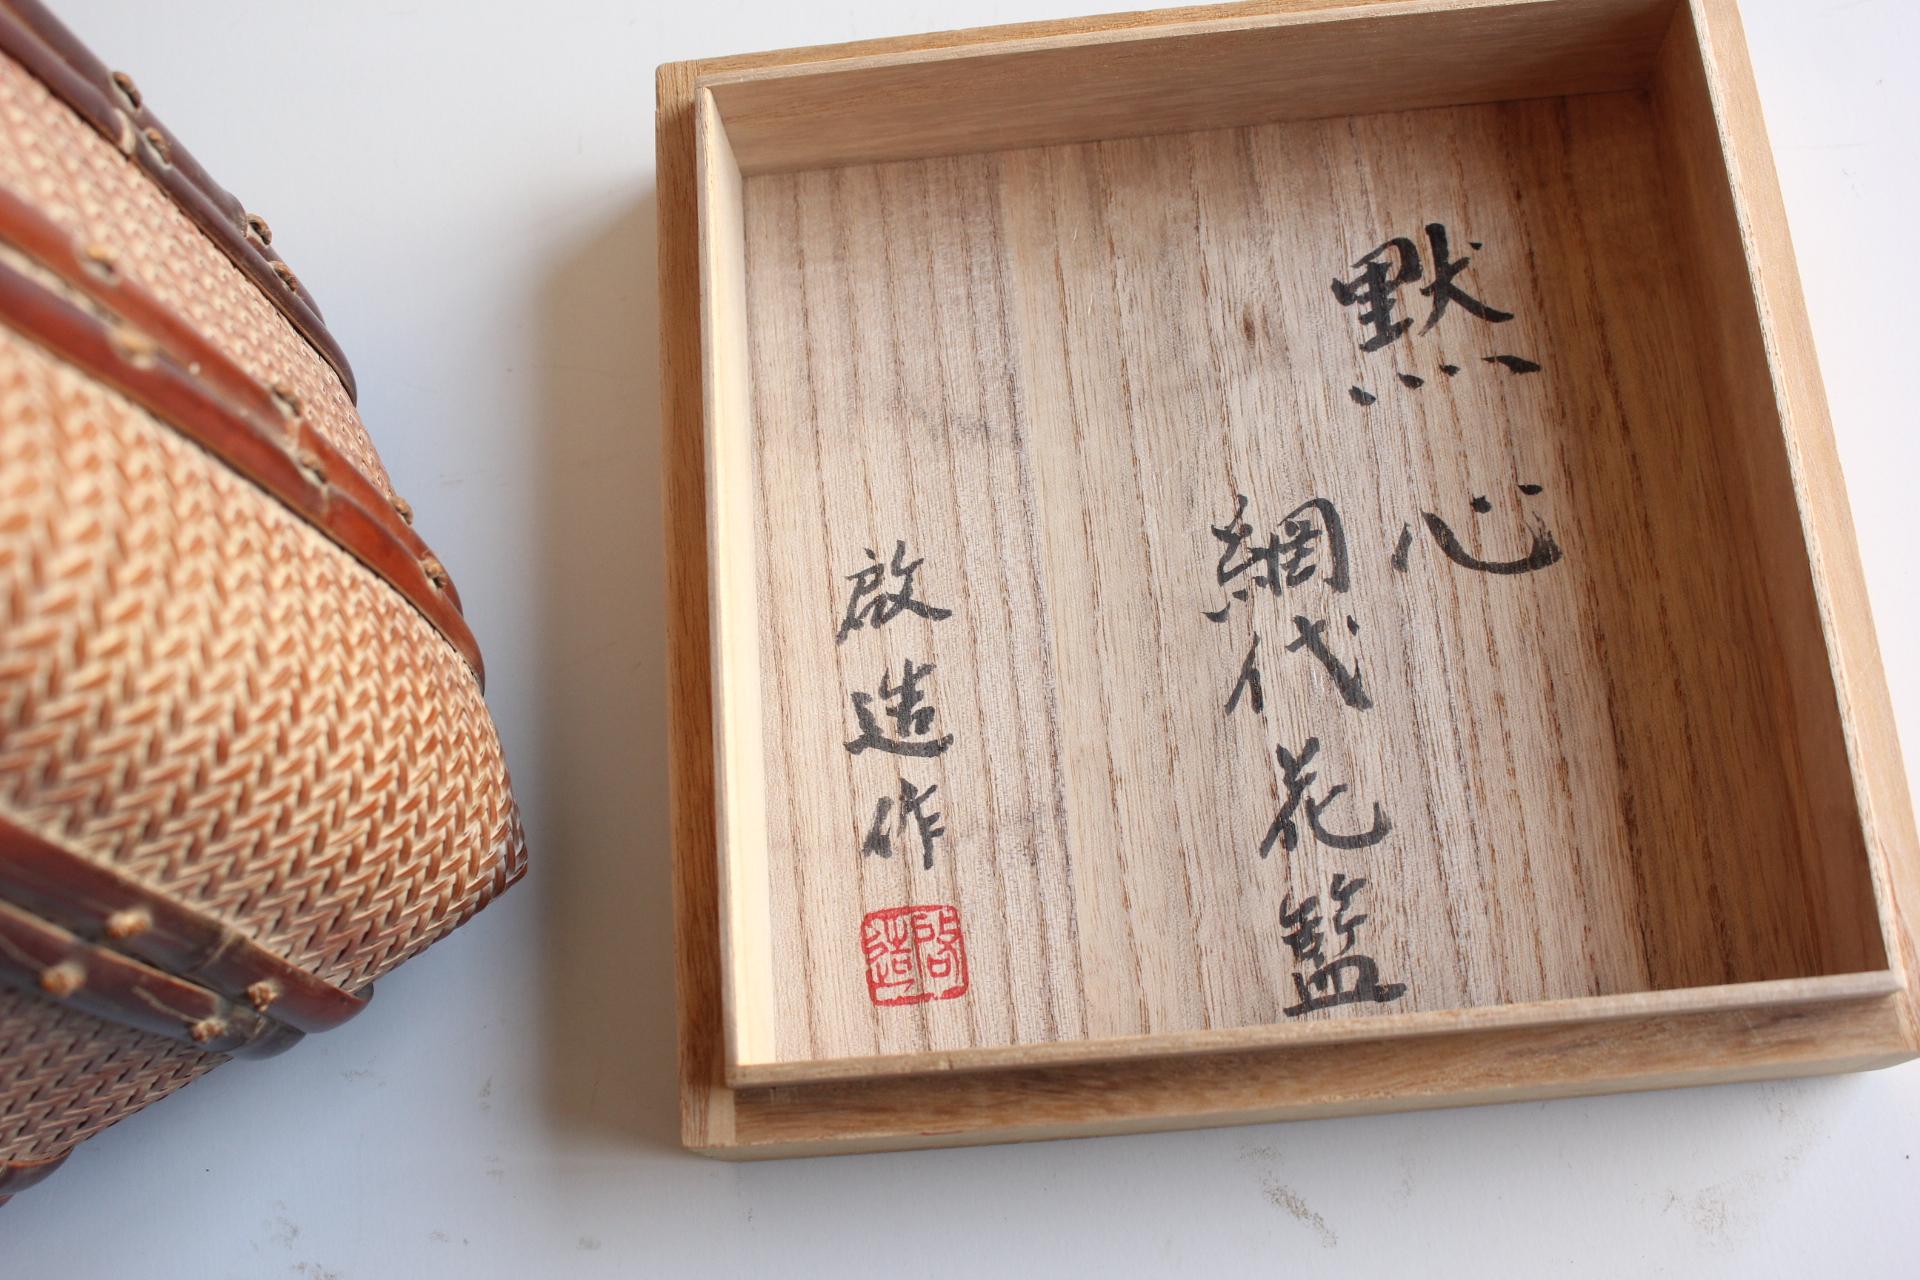 黙心
網代花籃
啟造作
啓造